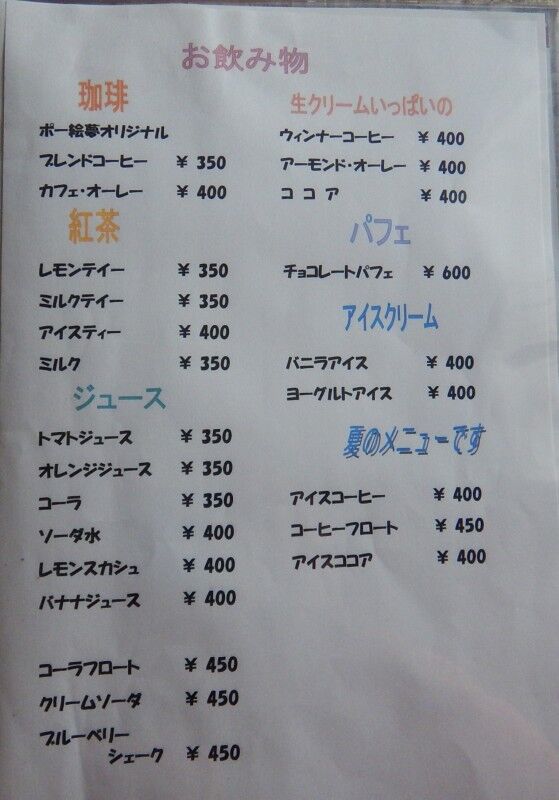 お飲み物
珈琲
ポー絵夢オリジナル
ブレンドコーヒー ¥ 350
カフェ・オーレー ¥ 400
紅茶
レモンティー ¥ 350
ミルクティー ¥ 350
アイスティー ¥ 400
ミルク ¥ 350
ジュース
トマトジュース ¥ 350
オレンジジュース ¥ 350
コーラ ¥ 350
ソーダ水 ¥ 400
レモンスカシュ ¥ 400
バナナジュース ¥ 400
コーラフロート ¥ 450
クリームソーダ ¥ 450
ブルーベリー
シェーク ¥ 450
生クリームいっぱいの
ウィンナーコーヒー ¥ 400
アーモンド・オーレー ¥ 400
コ コ ア ¥ 400
パフェ
チョコレートパフェ ¥ 600
アイスクリーム
バニラアイス ¥ 400
ヨーグルトアイス ¥ 400
夏のメニューです
アイスコーヒー ¥ 400
コーヒーフロート ¥ 450
アイスココア ¥ 400